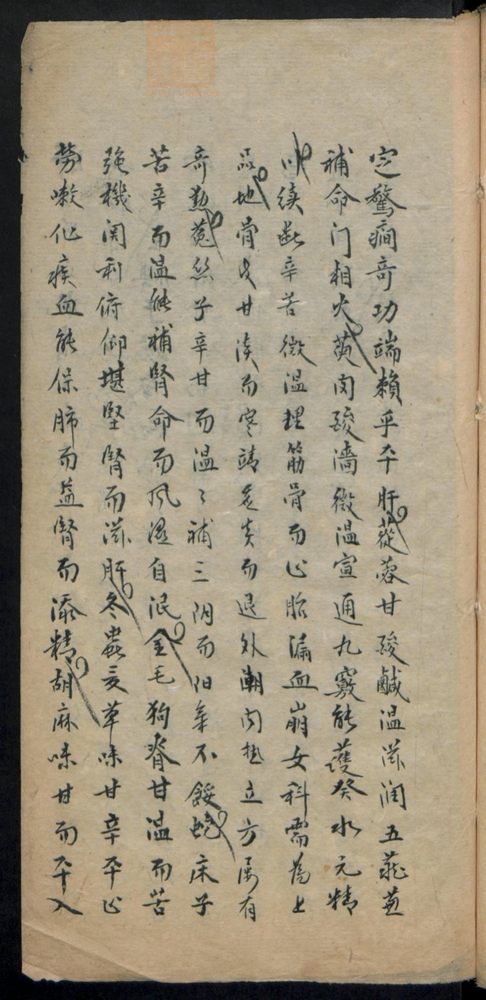 定驚癇奇功端賴乎平肝蓯蓉甘酸鹹温滋潤五臟並
補命门相火萸肉酸濇微温宣通九竅能護癸水元精
川续断辛苦微温理筋骨而止胎漏血崩女科需為上
品地骨皮甘淡而寒靖虛炎而退外潮内热立方原有
奇勳菟丝子辛甘而温々補三阴而阳氣不餒蛇床子
苦辛而温能補腎命而风湿自泯金毛狗脊甘温而苦
强機関利俯仰堪堅腎而滋肝冬蟲夏草味甘辛平止
勞嗽化痰血能保肺而益腎而添精胡麻味甘而平入